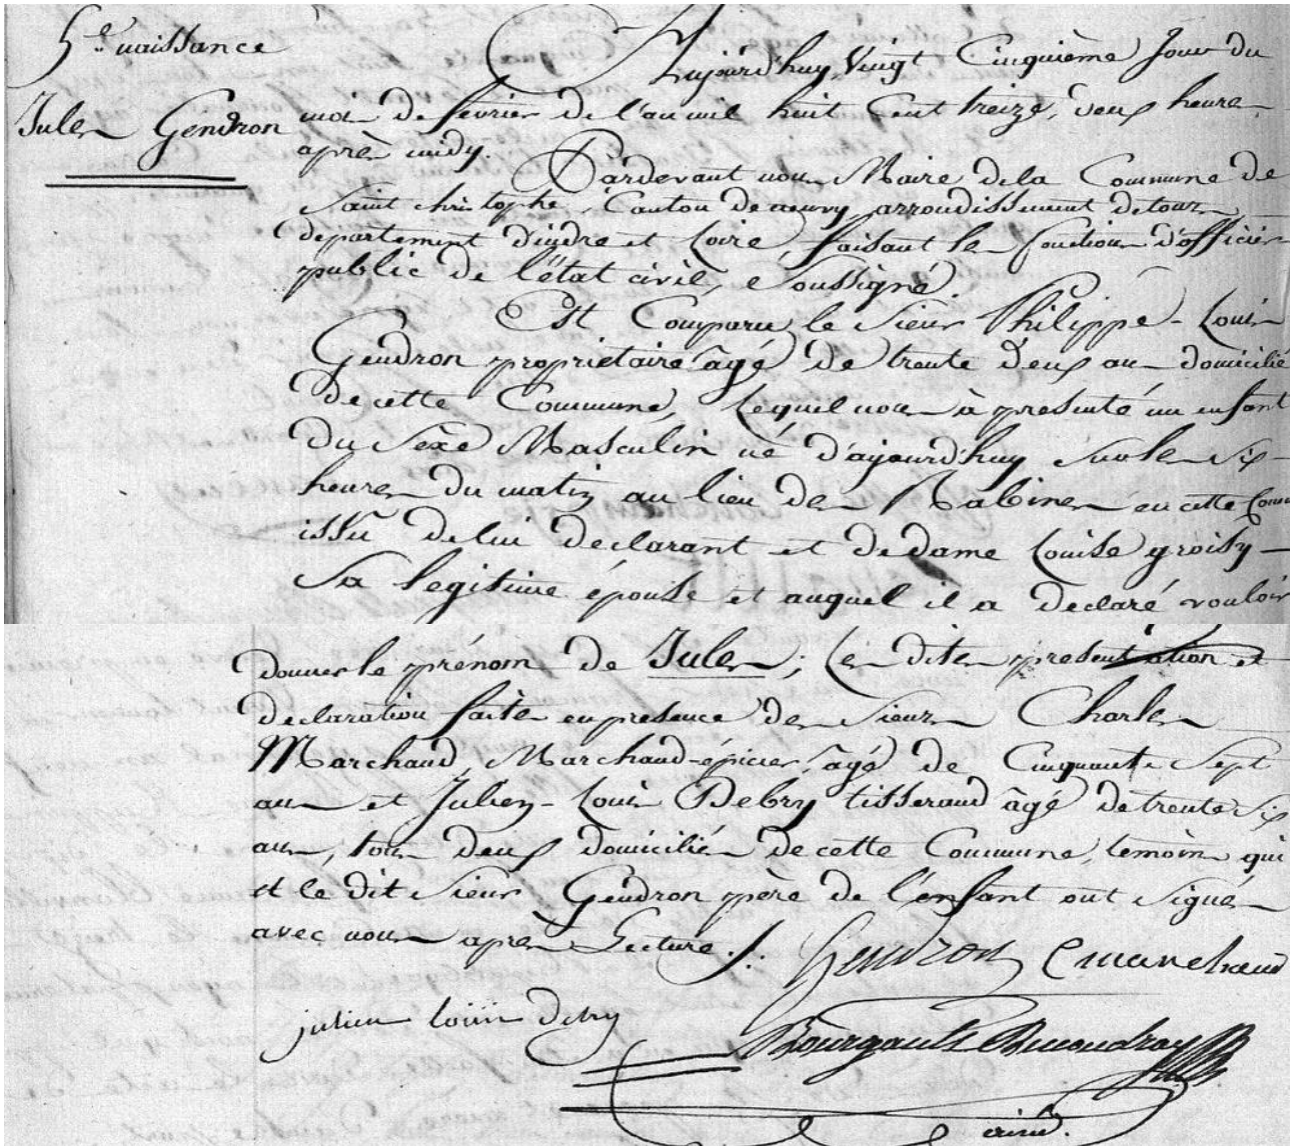 5.e naissance
Jules Gendron
Aujourd'huy Vingt Cinquième Jour du
mois de fevrier de l'an mil huit Cent treize, deux heures
après midy. Pardevant nous Maire de la Commune de
Saint christophe, Canton de neuvy arrondissement de tours
departement d'indre et Loire, faisant les fonctions d'officier
public de l'état civil, Soussigné
Est Comparu le Sieur Philippe-Louis
Gendron propriétaire âgé de trente deux ans domicilié
de cette Commune, Lequel nous à presenté un enfant
du Sèxe Masculin né d'aujourd'huy sur les six
heures du matin au lieu des Rabines en cette Com
issu de lui declarant et de dame Louise groisy
Sa legitime épouse et auquel il a declaré vouloir
donner le prénom de Jules; Les dites presentation et
declaration faites en presence des Sieurs Charles
Marchand, Marchand-épicier, âgé de Cinquante Sept
ans et Julien-Louis Debry tisserand âgé de trente Six
ans, tous deux domiciliés de cette Commune, temoins qui
et le dit Sieur Gendron père de l'enfant ont Signés
avec nous après Lecture ./.
Gendron C marchand
julien louis debry
Bourgault Ducoudray